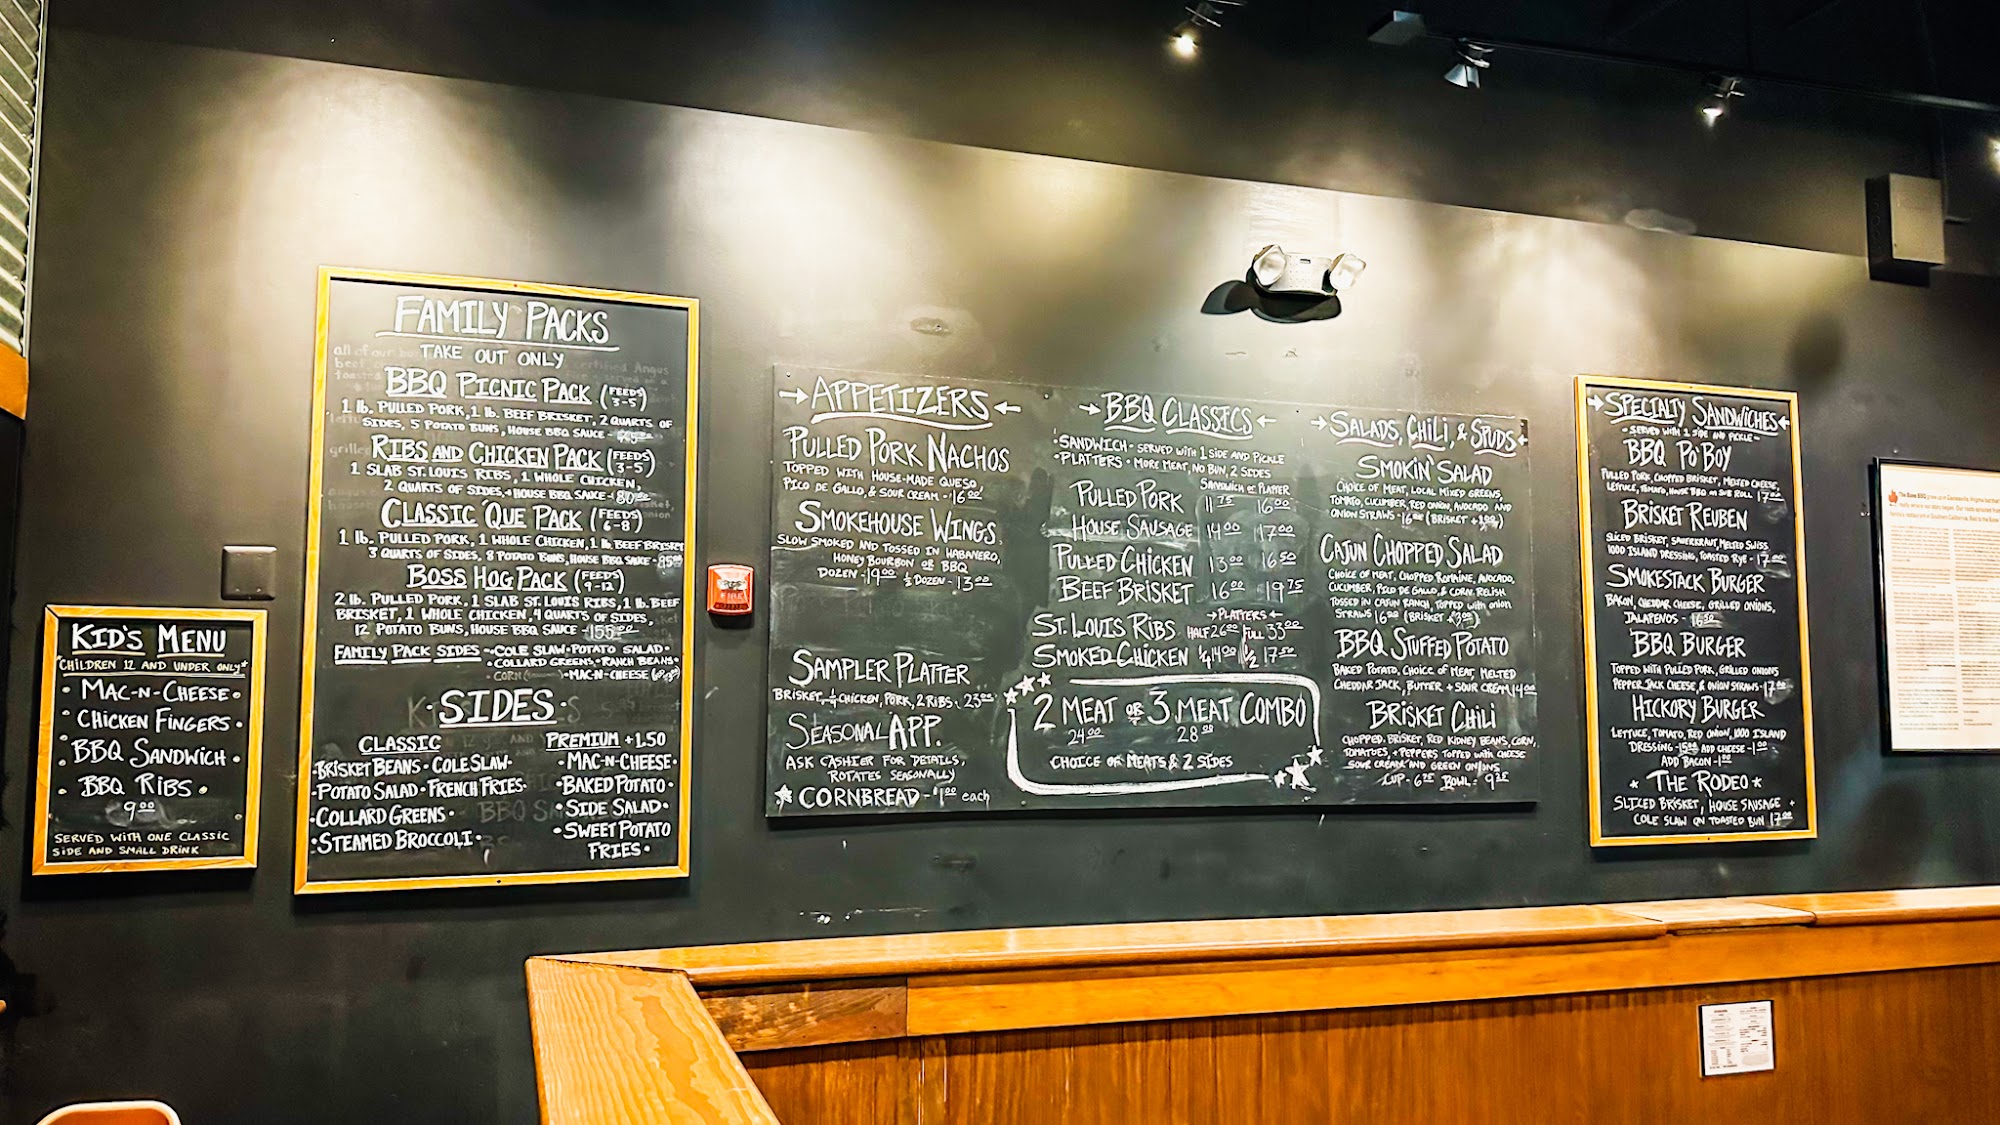 KID'S MENU
*CHILDREN 12 AND UNDER ONLY*
• MAC-N-CHEESE •
• CHICKEN FINGERS •
• BBQ SANDWICH •
• BBQ RIBS •
9.00
SERVED WITH ONE CLASSIC
SIDE AND SMALL DRINK
FAMILY PACKS
TAKE OUT ONLY
BBQ PICNIC PACK (FEEDS 3-5)
1 lb. PULLED PORK, 1 lb. BEEF BRISKET, 2 QUARTS OF
SIDES, 5 POTATO BUNS, HOUSE BBQ SAUCE -
RIBS AND CHICKEN PACK (FEEDS 3-5)
1 SLAB ST. LOUIS RIBS, 1 WHOLE CHICKEN,
2 QUARTS OF SIDES, + HOUSE BBQ SAUCE - 80.00
CLASSIC 'QUE PACK (FEEDS 6-8)
1 lb. PULLED PORK, 1 WHOLE CHICKEN, 1 lb. BEEF BRISKET
3 QUARTS OF SIDES, 8 POTATO BUNS, HOUSE BBQ SAUCE -
BOSS HOG PACK (FEEDS 9-12)
2 lb. PULLED PORK, 1 SLAB ST. LOUIS RIBS, 1 lb. BEEF
BRISKET, 1 WHOLE CHICKEN, 4 QUARTS OF SIDES,
12 POTATO BUNS, HOUSE BBQ SAUCE - 155.00
FAMILY PACK SIDES - • COLE SLAW • POTATO SALAD •
• COLLARD GREENS • RANCH BEANS •
• CORN • MAC-N-CHEESE
• SIDES •
CLASSIC
• BRISKET BEANS • COLE SLAW •
• POTATO SALAD • FRENCH FRIES •
• COLLARD GREENS •
• STEAMED BROCCOLI •
PREMIUM +1.50
• MAC-N-CHEESE •
• BAKED POTATO •
• SIDE SALAD •
• SWEET POTATO
FRIES •
→ APPETIZERS ←
PULLED PORK NACHOS
TOPPED WITH HOUSE-MADE QUESO,
PICO DE GALLO, & SOUR CREAM - 16.00
SMOKEHOUSE WINGS
SLOW SMOKED AND TOSSED IN HABANERO,
HONEY BOURBON OR BBQ
DOZEN - 19.00 ½ DOZEN - 13.00
SAMPLER PLATTER
BRISKET, ¼ CHICKEN, PORK, 2 RIBS - 23.00
SEASONAL APP.
ASK CASHIER FOR DETAILS,
ROTATES SEASONALLY
★ CORNBREAD - $1.00 each
→ BBQ CLASSICS ←
• SANDWICH - SERVED WITH 1 SIDE AND PICKLE
• PLATTERS - MORE MEAT, NO BUN, 2 SIDES
SANDWICH or PLATTER
PULLED PORK 11.75 16.00
HOUSE SAUSAGE 14.00 17.00
PULLED CHICKEN 13.00 16.50
BEEF BRISKET 16.00 19.75
→ PLATTERS ←
ST. LOUIS RIBS HALF 26.00 FULL 33.00
SMOKED CHICKEN ¼ 14.00 ½ 17.50
2 MEAT OR 3 MEAT COMBO
24.00 28.00
CHOICE OF MEATS & 2 SIDES
→ SALADS, CHILI, & SPUDS ←
SMOKIN' SALAD
CHOICE OF MEAT, LOCAL MIXED GREENS,
TOMATO, CUCUMBER, RED ONION, AVOCADO AND
ONION STRAWS - 16.00 (BRISKET + 3.00)
CAJUN CHOPPED SALAD
CHOICE OF MEAT, CHOPPED ROMAINE, AVOCADO,
CUCUMBER, PICO DE GALLO, & CORN RELISH
TOSSED IN CAJUN RANCH, TOPPED WITH ONION
STRAWS 16.00 (BRISKET 3.00)
BBQ STUFFED POTATO
BAKED POTATO, CHOICE OF MEAT MELTED
CHEDDAR JACK, BUTTER + SOUR CREAM 14.00
BRISKET CHILI
CHOPPED BRISKET, RED KIDNEY BEANS, CORN,
TOMATOES, + PEPPERS TOPPED WITH CHEESE
SOUR CREAM AND GREEN ONIONS
CUP - 6.75 BOWL - 9.25
→ SPECIALTY SANDWICHES ←
- SERVED WITH 1 SIDE AND PICKLE -
BBQ PO' BOY
PULLED PORK, CHOPPED BRISKET, MELTED CHEESE,
LETTUCE, TOMATO, HOUSE BBQ ON SUB ROLL 17.00
BRISKET REUBEN
SLICED BRISKET, SAUERKRAUT, MELTED SWISS
1000 ISLAND DRESSING, TOASTED RYE - 17.00
SMOKESTACK BURGER
BACON, CHEDDAR CHEESE, GRILLED ONIONS,
JALAPENOS - 16.50
BBQ BURGER
TOPPED WITH PULLED PORK, GRILLED ONIONS
PEPPER JACK CHEESE, & ONION STRAWS - 17.00
HICKORY BURGER
LETTUCE, TOMATO, RED ONION, 1000 ISLAND
DRESSING - 15.00 ADD CHEESE - 1.00
ADD BACON - 1.00
★ THE RODEO ★
SLICED BRISKET, HOUSE SAUSAGE +
COLE SLAW ON TOASTED BUN 17.00
FIRE